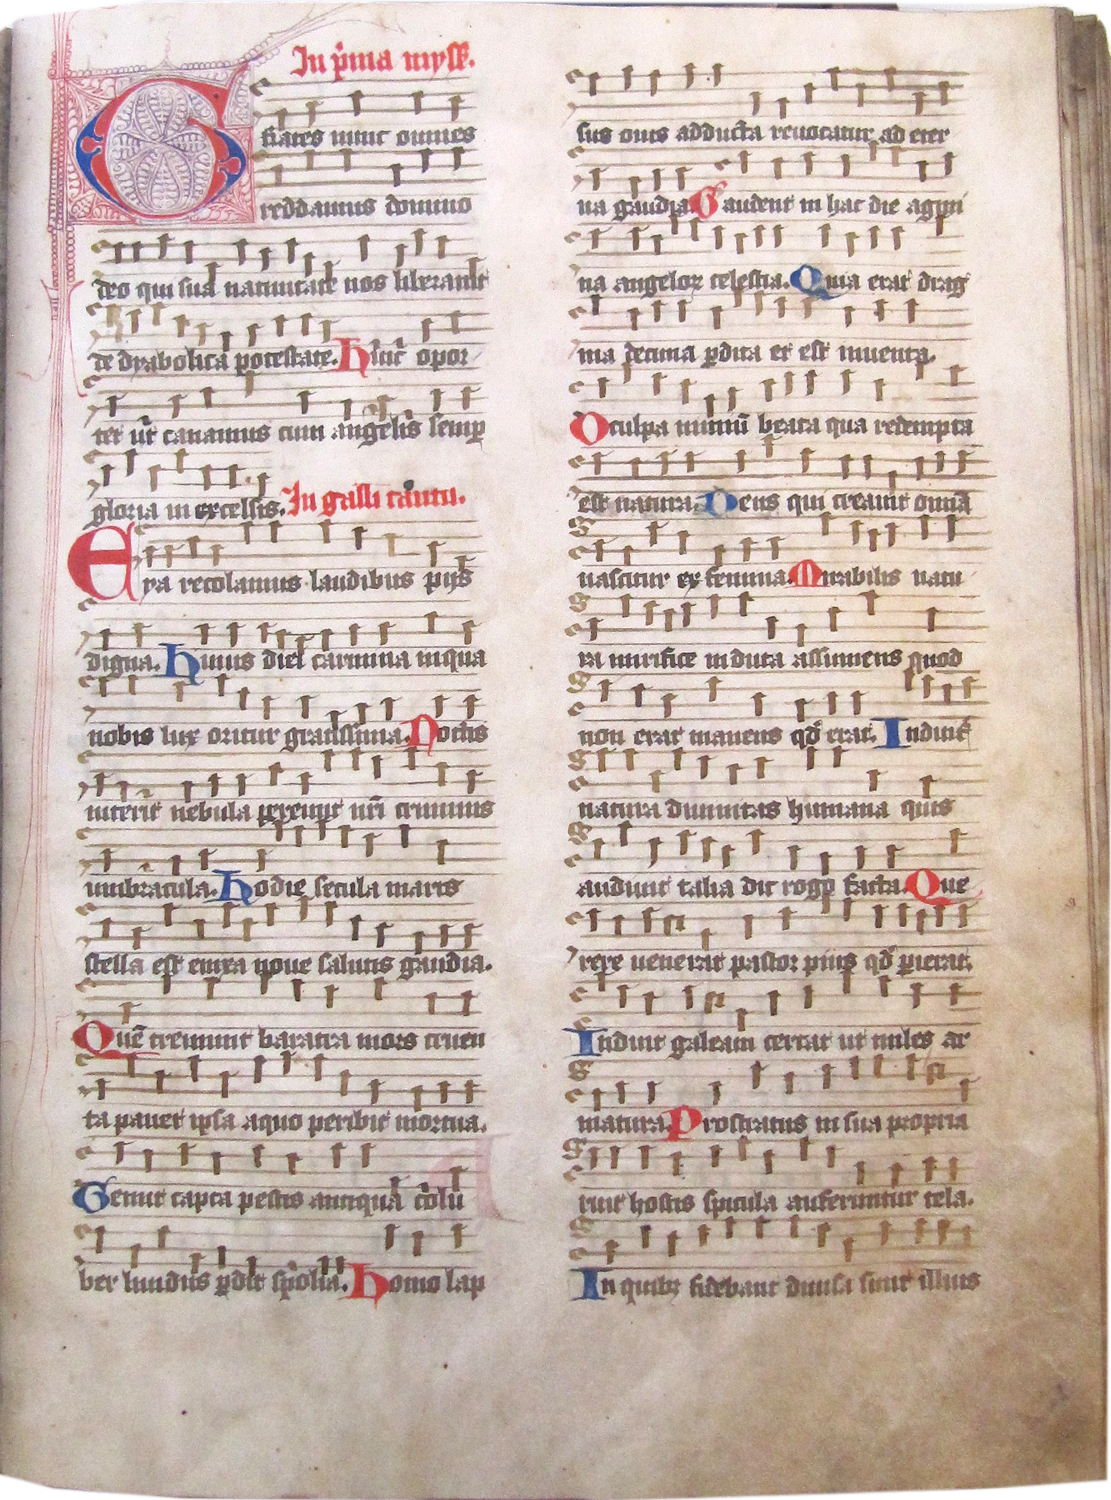 In p̄ma myss̄.
Grates nunc omnes
reddamus domino
deo qui sua natiuitate nos liberauit
de dyabolica potestate. Huic opor
tet ut canamus cum angelis semp
gloria in excelsis. In galli cantu.
Eya recolamus laudibus pijs
digna. Huius diei carmina inqua
nobis lux oritur gratissima. Noctis
interit nebula pereunt nr̄i criminis
umbracula. Hodie seculo maris
stella est enixa noue salutis gaudia.
Quē tremunt baratra mors cruen
ta pauet ipsa aquo peribit mortua.
Gemit capta pestis antiqua colu
ber liuidus p̄dit spolia. Homo lap
sus ouis adducta reuocatur ad eter
na gaudia. Gaudent in hac die agmi
na angeloꝝ celestia. Quia erat drag
ma decima p̄dita et est inuenta.
O culpa nimiū beata qua redempta
est natura. Deus qui creauit omīa
nascitur ex femina. Mirabilis natu
ra mirifice induta assumens quod
non erat manens qd̄ erat. Induit᷑
natura diuinitas humana quis
audiuit talia dic rogo facta. Que
rere uenerat pastor pius qd̄ pierat.
Induit galeam certat ut miles ar
matura. Prostratus in sua propria
ruit hostis spicula auferuntur tela.
In quibꝫ fidebant diuisa sunt illius